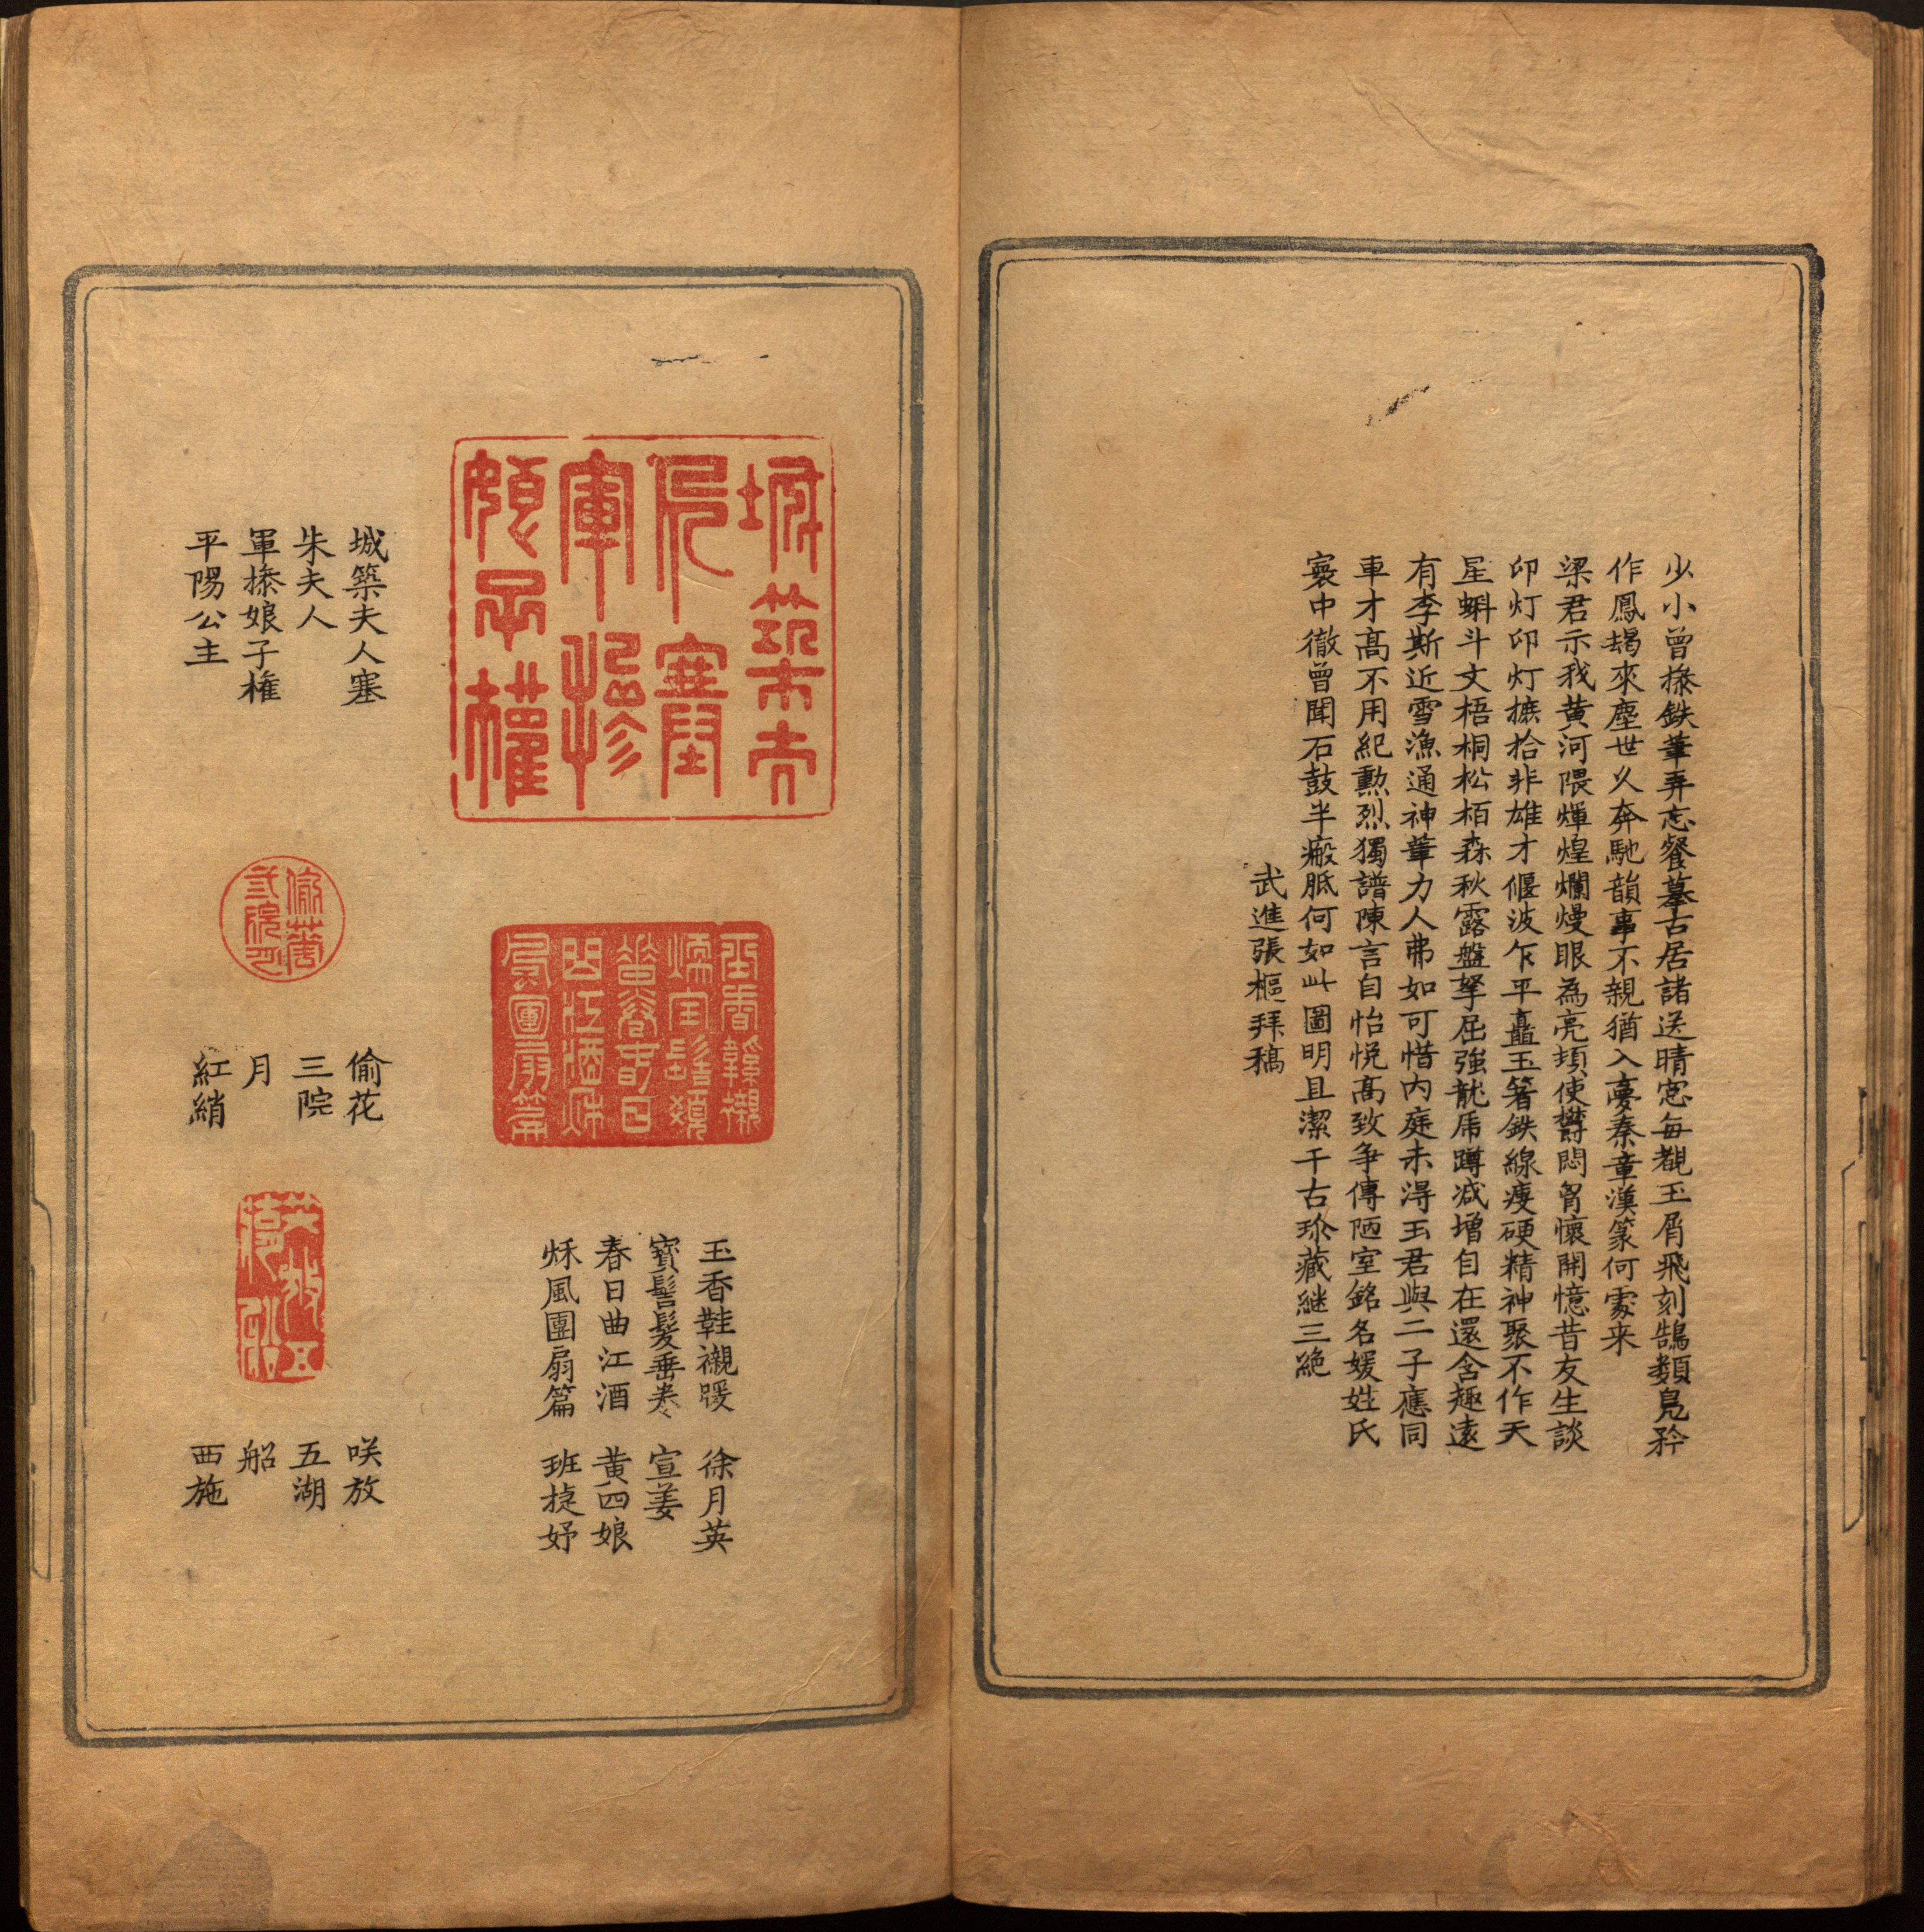 少小曾摻鉄筆弄忘餐摹古居諸送晴窓每覩玉屑飛刻鵠類鳬矜
作鳳朅來塵世久奔馳韻事不親猶入夢秦章漢篆何處来
梁君示我黄河隈煇煌爛熳眼為亮頓使欝悶胷懷開憶昔友生談
印灯印灯摭拾非雄才偃波乍平矗玉箸鉄線瘦硬精神聚不作天
星蝌斗文梧桐松栢森秋露盤拏屈強龍乕蹲减增自在還含趣遠
有李斯近雪漁通神筆力人弗如可惜内庭未淂玉君與二子應同
車才髙不用紀勲烈獨譜陳言自怡悦髙致争傳陋室銘名媛姓氏
寰中徹曾聞石鼓半瘢胝何如此圖明且潔千古珎藏継三絶
武進張樞拜稿
城築夫人塞
朱夫人
軍摻娘子權
平陽公主
玉香鞋襯煖 徐月英
寳髻髮垂卷 宣姜
春日曲江酒 黄四娘
秌風團扇篇 班㨗妤
偷花
三院
月
紅綃
咲放
五湖
船
西施